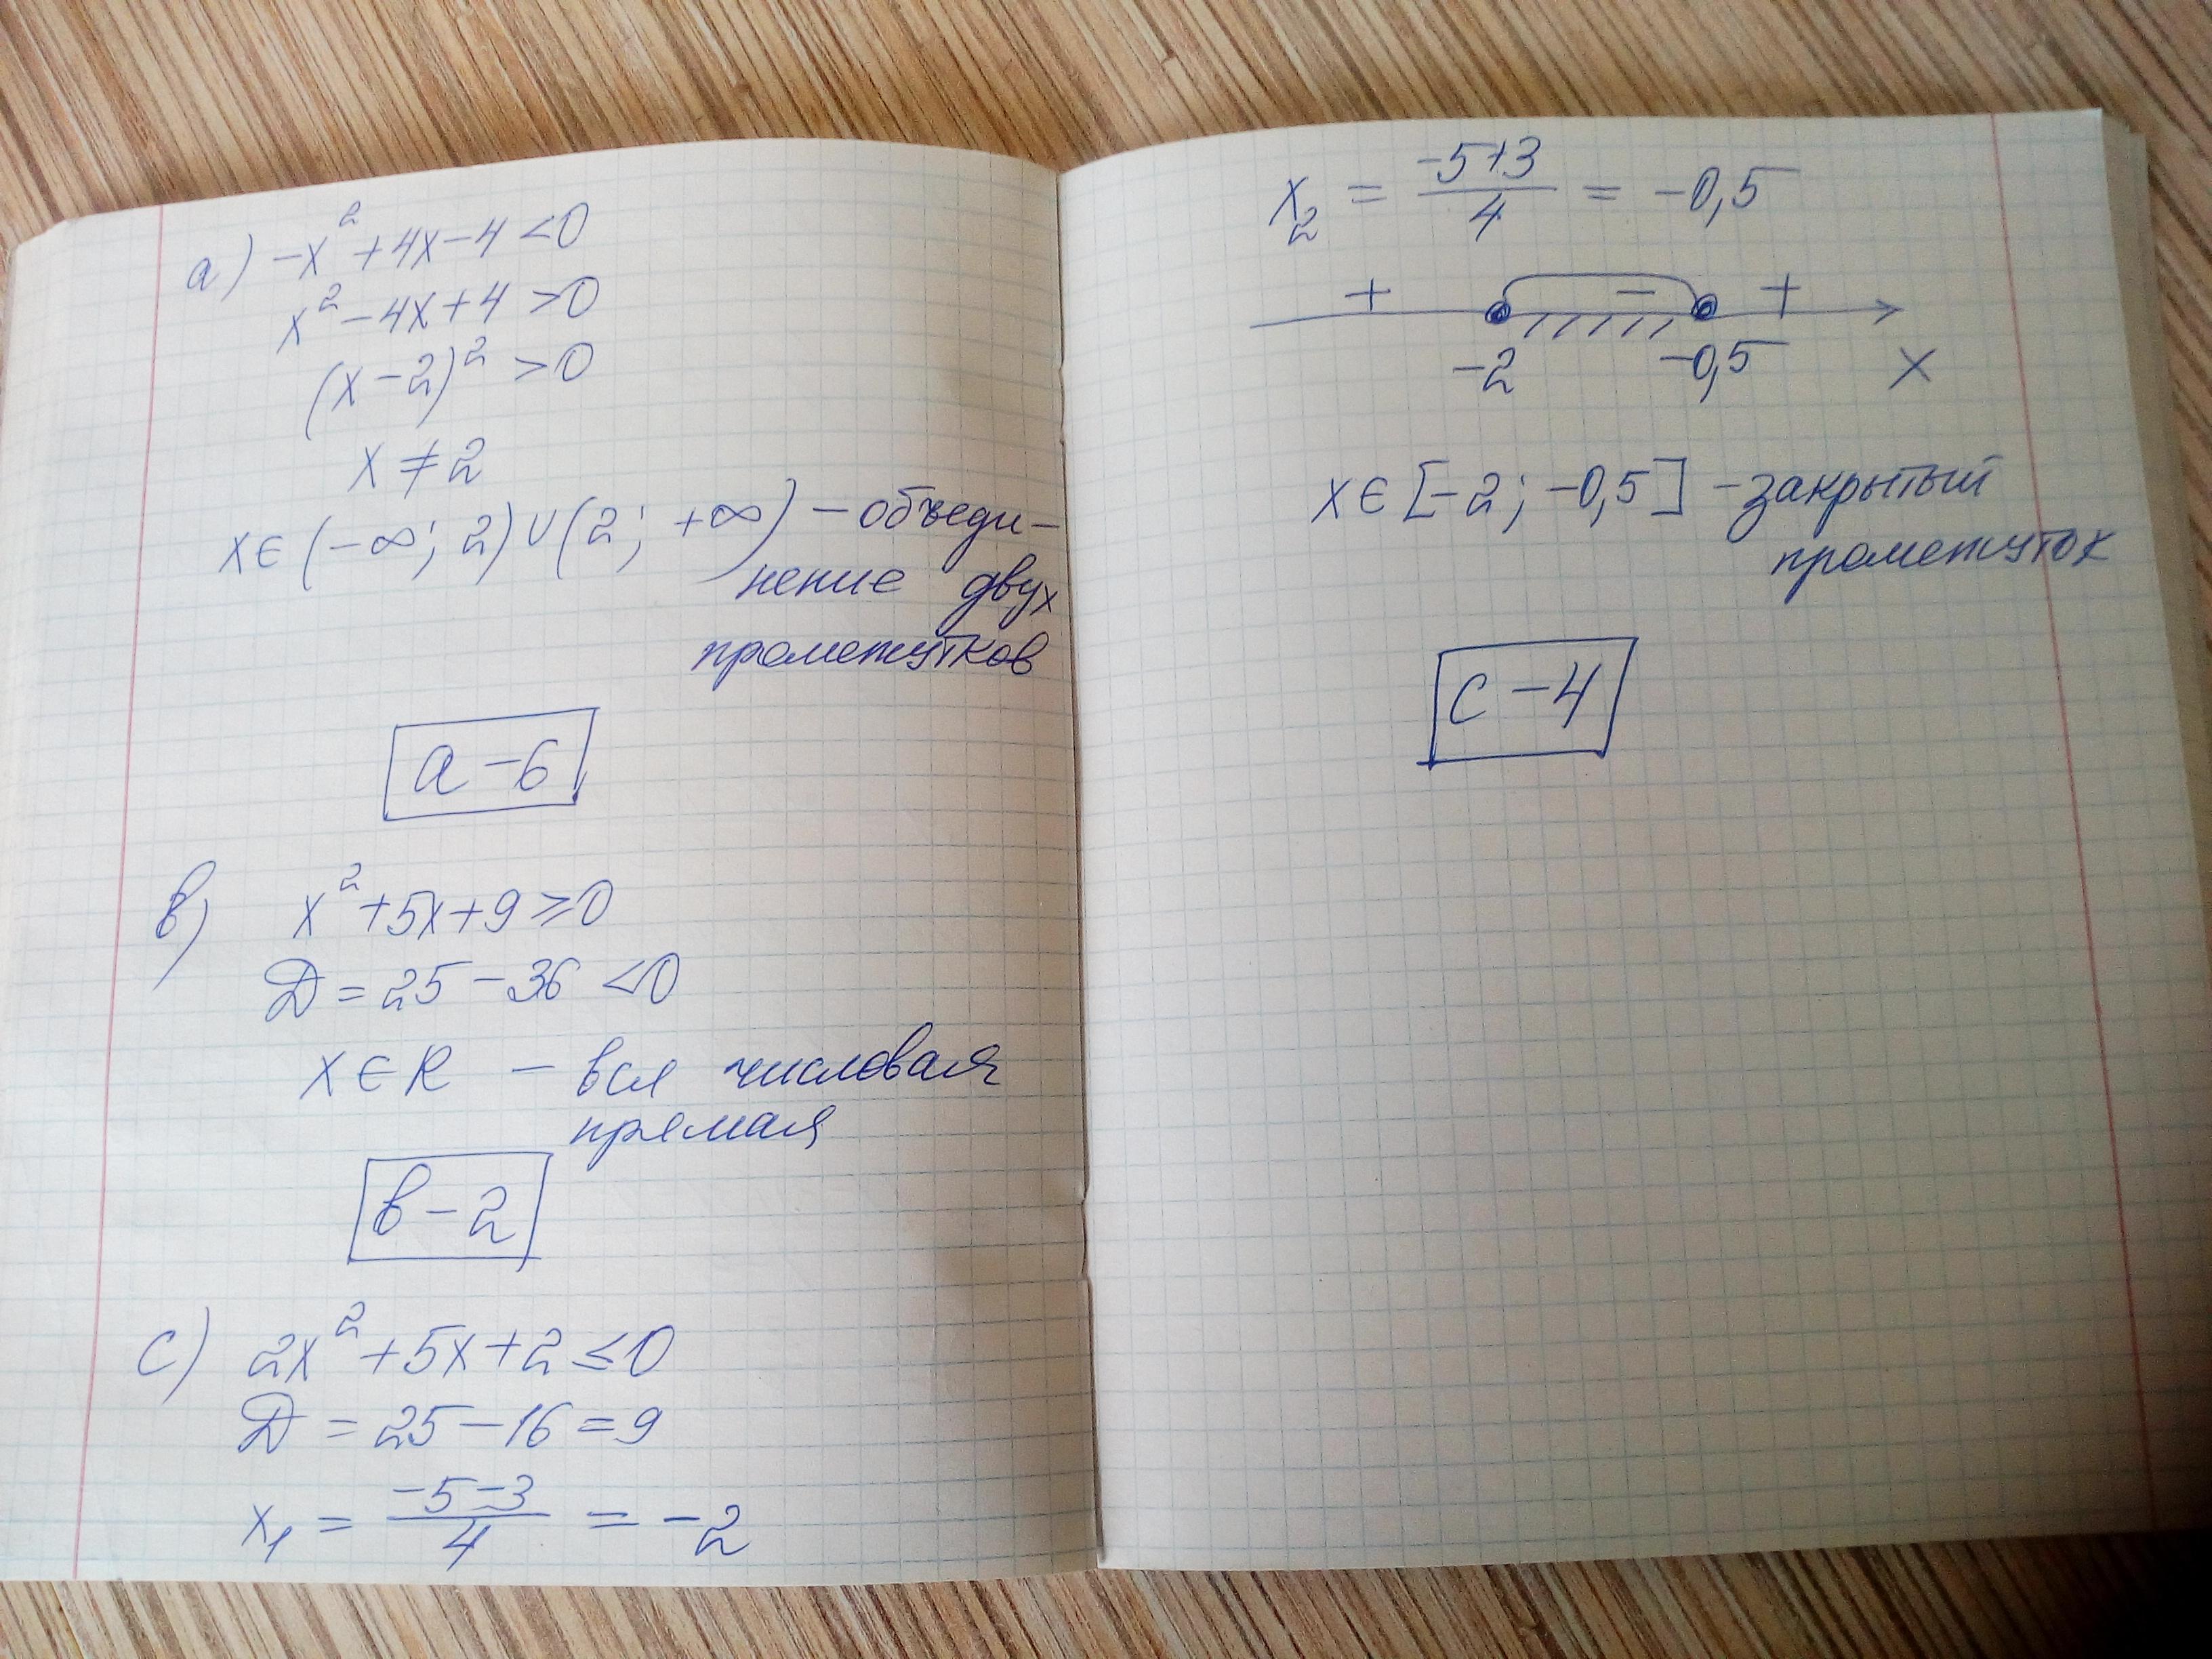 a) -x² + 4x - 4 < 0
x² - 4x + 4 > 0
(x - 2)² > 0
x ≠ 2
x ∈ (-∞; 2) ∪ (2; +∞) - объеди-
нение двух
промежутков
a - 6
в) x² + 5x + 9 ≥ 0
Д = 25 - 36 < 0
x ∈ R - вся числовая
прямая
в - 2
c) 2x² + 5x + 2 ≤ 0
Д = 25 - 16 = 9
x₁ = (-5 - 3)/4 = -2
x₂ = (-5 + 3)/4 = -0,5
+ - +
-2 -0,5 x
x ∈ [-2; -0,5] - закрытый
промежуток
c - 4